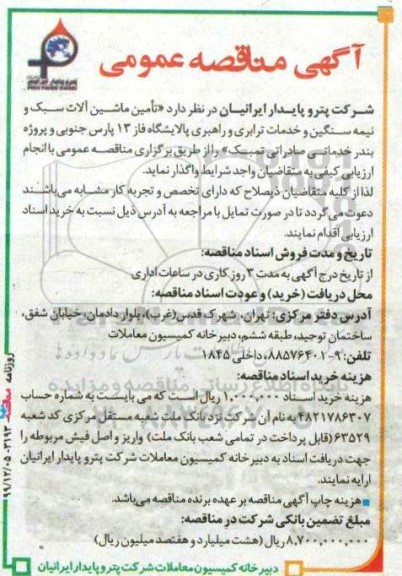 آگهی مناقصه عمومی
شرکت پترو پایدار ایرانیان در نظر دارد «تأمین ماشین آلات سبک و
نیمه سنگین و خدمات ترابری و راهبری پالایشگاه فاز ۱۳ پارس جنوبی و پروژه
بندر خدماتی صادراتی تمبک» را از طریق برگزاری مناقصه عمومی با انجام
ارزیابی کیفی به متقاضیان واجد شرایط واگذار نماید.
لذا از کلیه متقاضیان ذیصلاح که دارای تخصص و تجربه کار مشابه می‌باشند
دعوت می‌گردد تا در صورت تمایل با مراجعه به آدرس ذیل نسبت به خرید اسناد
ارزیابی اقدام نمایند.
تاریخ و مدت فروش اسناد مناقصه:
از تاریخ درج آگهی به مدت ۳ روز کاری در ساعات اداری
محل دریافت (خرید) و عودت اسناد مناقصه:
آدرس دفتر مرکزی: تهران، شهرک قدس (غرب)، بلوار دادمان، خیابان شفق،
ساختمان توحید، طبقه ششم، دبیرخانه کمیسیون معاملات
تلفن: ۹-۸۸۵۷۶۴۰۲، داخلی ۱۸۴۵
هزینه خرید اسناد مناقصه:
هزینه خرید اسناد ۱,۰۰۰,۰۰۰ ریال است که می بایست به شماره حساب
۴۸۲۱۷۸۶۳۰۷ به نام آن شرکت نزد بانک ملت شعبه مستقل مرکزی کد شعبه
۶۳۵۲۹ (قابل پرداخت در تمامی شعب بانک ملت) واریز و اصل فیش مربوطه را
جهت دریافت اسناد به دبیرخانه کمیسیون معاملات شرکت پترو پایدار ایرانیان
ارایه نمایند.
هزینه چاپ آگهی مناقصه بر عهده برنده مناقصه می‌باشد.
مبلغ تضمین بانکی شرکت در مناقصه:
۸,۷۰۰,۰۰۰,۰۰۰ ریال (هشت میلیارد و هفتصد میلیون ریال)
دبیرخانه کمیسیون معاملات شرکت پترو پایدار ایرانیان
روزنامه مناقصه ۳۱۹۳-۹۹/۱۲/۰۵